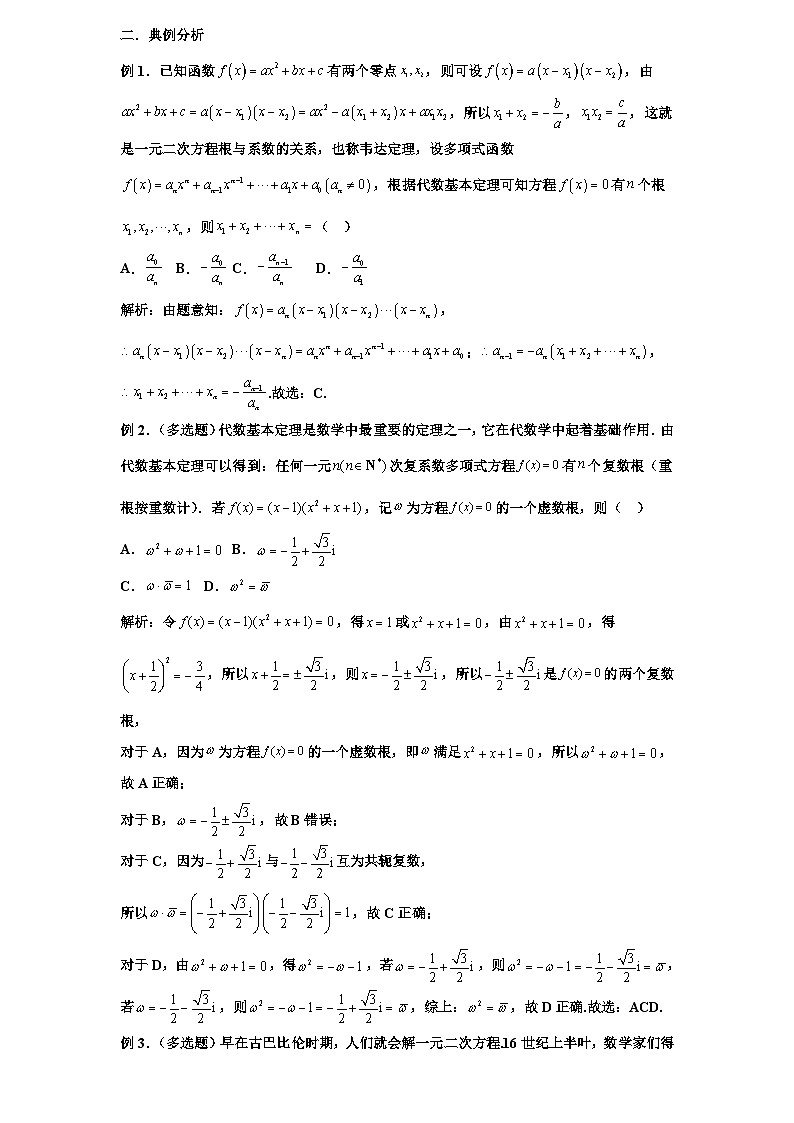 二．典例分析
例 1．已知函数 f(x)=ax²+bx+c 有两个零点 x₁,x₂，则可设 f(x)=a(x−x₁)(x−x₂)，由
ax²+bx+c=a(x−x₁)(x−x₂)=ax²−a(x₁+x₂)x+ax₁x₂，所以 x₁+x₂=−b/a，x₁x₂=c/a，这就
是一元二次方程根与系数的关系，也称韦达定理，设多项式函数
f(x)=aₙxⁿ+aₙ₋₁xⁿ⁻¹+⋯+a₁x+a₀(aₙ≠0)，根据代数基本定理可知方程 f(x)=0 有 n 个根
x₁,x₂,⋯,xₙ，则 x₁+x₂+⋯+xₙ=（ ）
A．a₀/aₙ B．−a₀/aₙ C．−aₙ₋₁/aₙ D．−a₀/a₁
解析：由题意知：f(x)=aₙ(x−x₁)(x−x₂)⋯(x−xₙ)，
∴aₙ(x−x₁)(x−x₂)⋯(x−xₙ)=aₙxⁿ+aₙ₋₁xⁿ⁻¹+⋯+a₁x+a₀；∴aₙ₋₁=−aₙ(x₁+x₂+⋯+xₙ)，
∴x₁+x₂+⋯+xₙ=−aₙ₋₁/aₙ.故选：C．
例 2．（多选题）代数基本定理是数学中最重要的定理之一，它在代数学中起着基础作用．由
代数基本定理可以得到：任何一元 n(n∈N*) 次复系数多项式方程 f(x)=0 有 n 个复数根（重
根按重数计）．若 f(x)=(x−1)(x²+x+1)，记 ω 为方程 f(x)=0 的一个虚数根，则（ ）
A．ω²+ω+1=0 B．ω=−1/2+√3/2 i
C．ω·ω̅=1 D．ω²=ω̅
解析：令 f(x)=(x−1)(x²+x+1)=0，得 x=1 或 x²+x+1=0，由 x²+x+1=0，得
(x+1/2)²=−3/4，所以 x+1/2=±√3/2 i，则 x=−1/2±√3/2 i，所以 −1/2±√3/2 i 是 f(x)=0 的两个复数
根，
对于 A，因为 ω 为方程 f(x)=0 的一个虚数根，即 ω 满足 x²+x+1=0，所以 ω²+ω+1=0，
故 A 正确；
对于 B，ω=−1/2±√3/2 i，故 B 错误；
对于 C，因为 −1/2+√3/2 i 与 −1/2−√3/2 i 互为共轭复数，
所以 ω·ω̅=(−1/2+√3/2 i)(−1/2−√3/2 i)=1，故 C 正确；
对于 D，由 ω²+ω+1=0，得 ω²=−ω−1，若 ω=−1/2+√3/2 i，则 ω²=−ω−1=−1/2−√3/2 i=ω̅，
若 ω=−1/2−√3/2 i，则 ω²=−ω−1=−1/2+√3/2 i=ω̅，综上：ω²=ω̅，故 D 正确.故选：ACD．
例 3．（多选题）早在古巴比伦时期，人们就会解一元二次方程.16 世纪上半叶，数学家们得